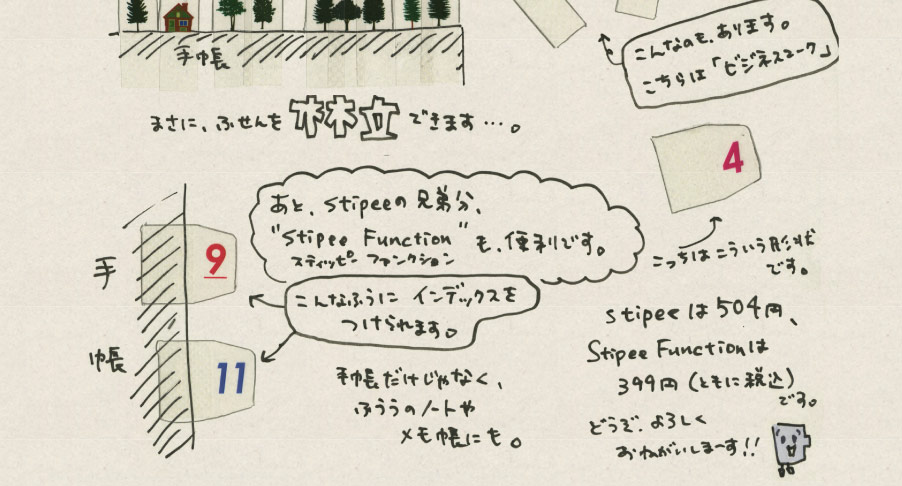 手帳
こんなのも、あります。
こちらは「ビジネスマーク」
まさに、ふせんを林立できます…。
4
こっちはこういう形状
です。
あと、stipeeの兄弟分、
"Stipee Function"も、便利です。
スティッピー ファンクション
手
帳
9
11
こんなふうに インデックスを
つけられます。
手帳だけじゃなく、
ふつうのノートや
メモ帳にも。
stipeeは504円、
Stipee Functionは
399円(ともに税込)
です。
どうぞ、よろしく
おねがいしまーす!!